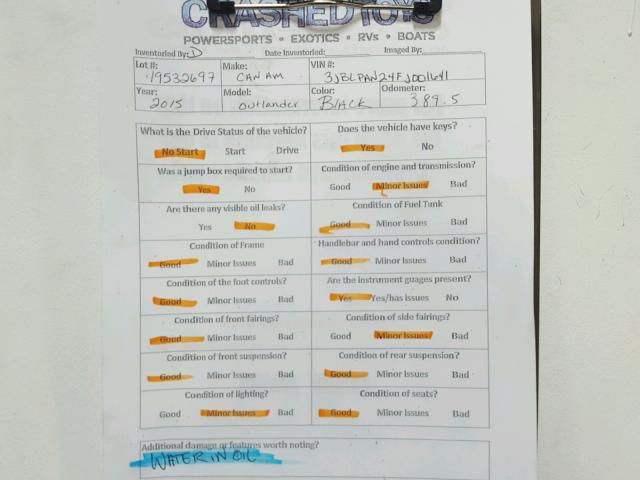 CRASHEDTOYS
POWERSPORTS • EXOTICS • RVs • BOATS
Inventoried By: D Date Inventoried: Imaged By:
Lot #: Make: VIN #:
19532697 CAN AM 3JBLPAN24FJ001641
Year: Model: Color: Odometer:
2015 Outlander Black 389.5
What is the Drive Status of the vehicle? Does the vehicle have keys?
No Start Start Drive Yes No
Was a jump box required to start? Condition of engine and transmission?
Yes No Good Minor Issues Bad
Are there any visible oil leaks? Condition of Fuel Tank
Yes No Good Minor Issues Bad
Condition of Frame Handlebar and hand controls condition?
Good Minor Issues Bad Good Minor Issues Bad
Condition of the foot controls? Are the instrument guages present?
Good Minor Issues Bad Yes Yes/has issues No
Condition of front fairings? Condition of side fairings?
Good Minor Issues Bad Good Minor Issues Bad
Condition of front suspension? Condition of rear suspension?
Good Minor Issues Bad Good Minor Issues Bad
Condition of lighting? Condition of seats?
Good Minor Issues Bad Good Minor Issues Bad
Additional damage or features worth noting?
WATER IN OIL